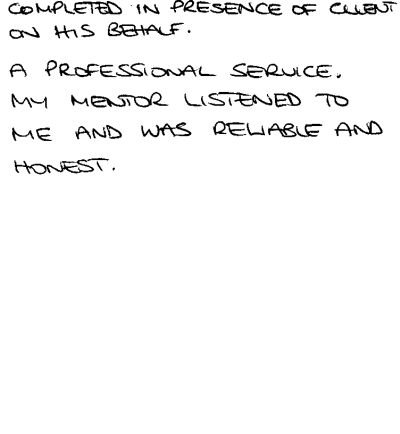 COMPLETED IN PRESENCE OF CLIENT
ON HIS BEHALF.
A PROFESSIONAL SERVICE.
MY MENTOR LISTENED TO
ME AND WAS RELIABLE AND
HONEST.